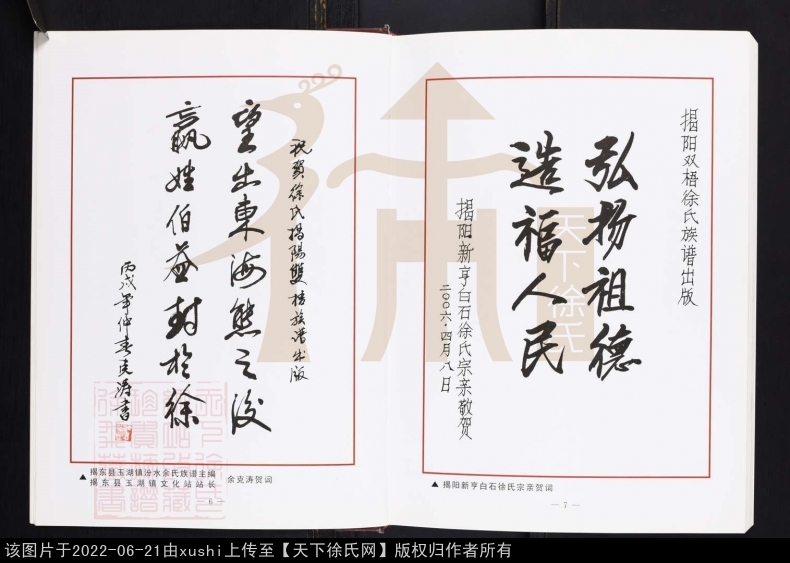 揭阳双梧徐氏族谱出版
弘扬祖德
造福人民
揭阳新亨白石徐氏宗亲敬贺
二〇〇六·四月八日
▲揭阳新亨白石徐氏宗亲贺词
— 7 —
祝贺徐氏揭陽雙梧族谱出版
望出東海熊之後
嬴姓伯益封於徐
丙戌年仲春克涛書
▲揭东县玉湖镇汾水余氏族谱主编
揭东县玉湖镇文化站站长
余克涛贺词
6 —
天下徐氏
该图片于2022-06-21由xushi上传至【天下徐氏网】版权归作者所有